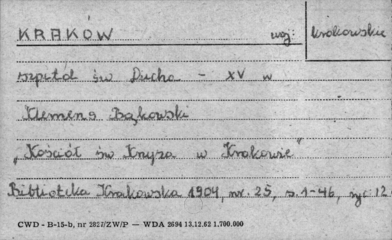 KRAKÓW woj: krakowskie
szpital św Ducha - XV w
Klemens Bąkowski
„Kościół św Krzyża w Krakowie"
Biblioteka Krakowska 1904, nr. 25, s. 1-46, ryc 12
CWD - B-15-b, nr 2827/ZW/P — WDA 2694 13.12.62 1.700.000